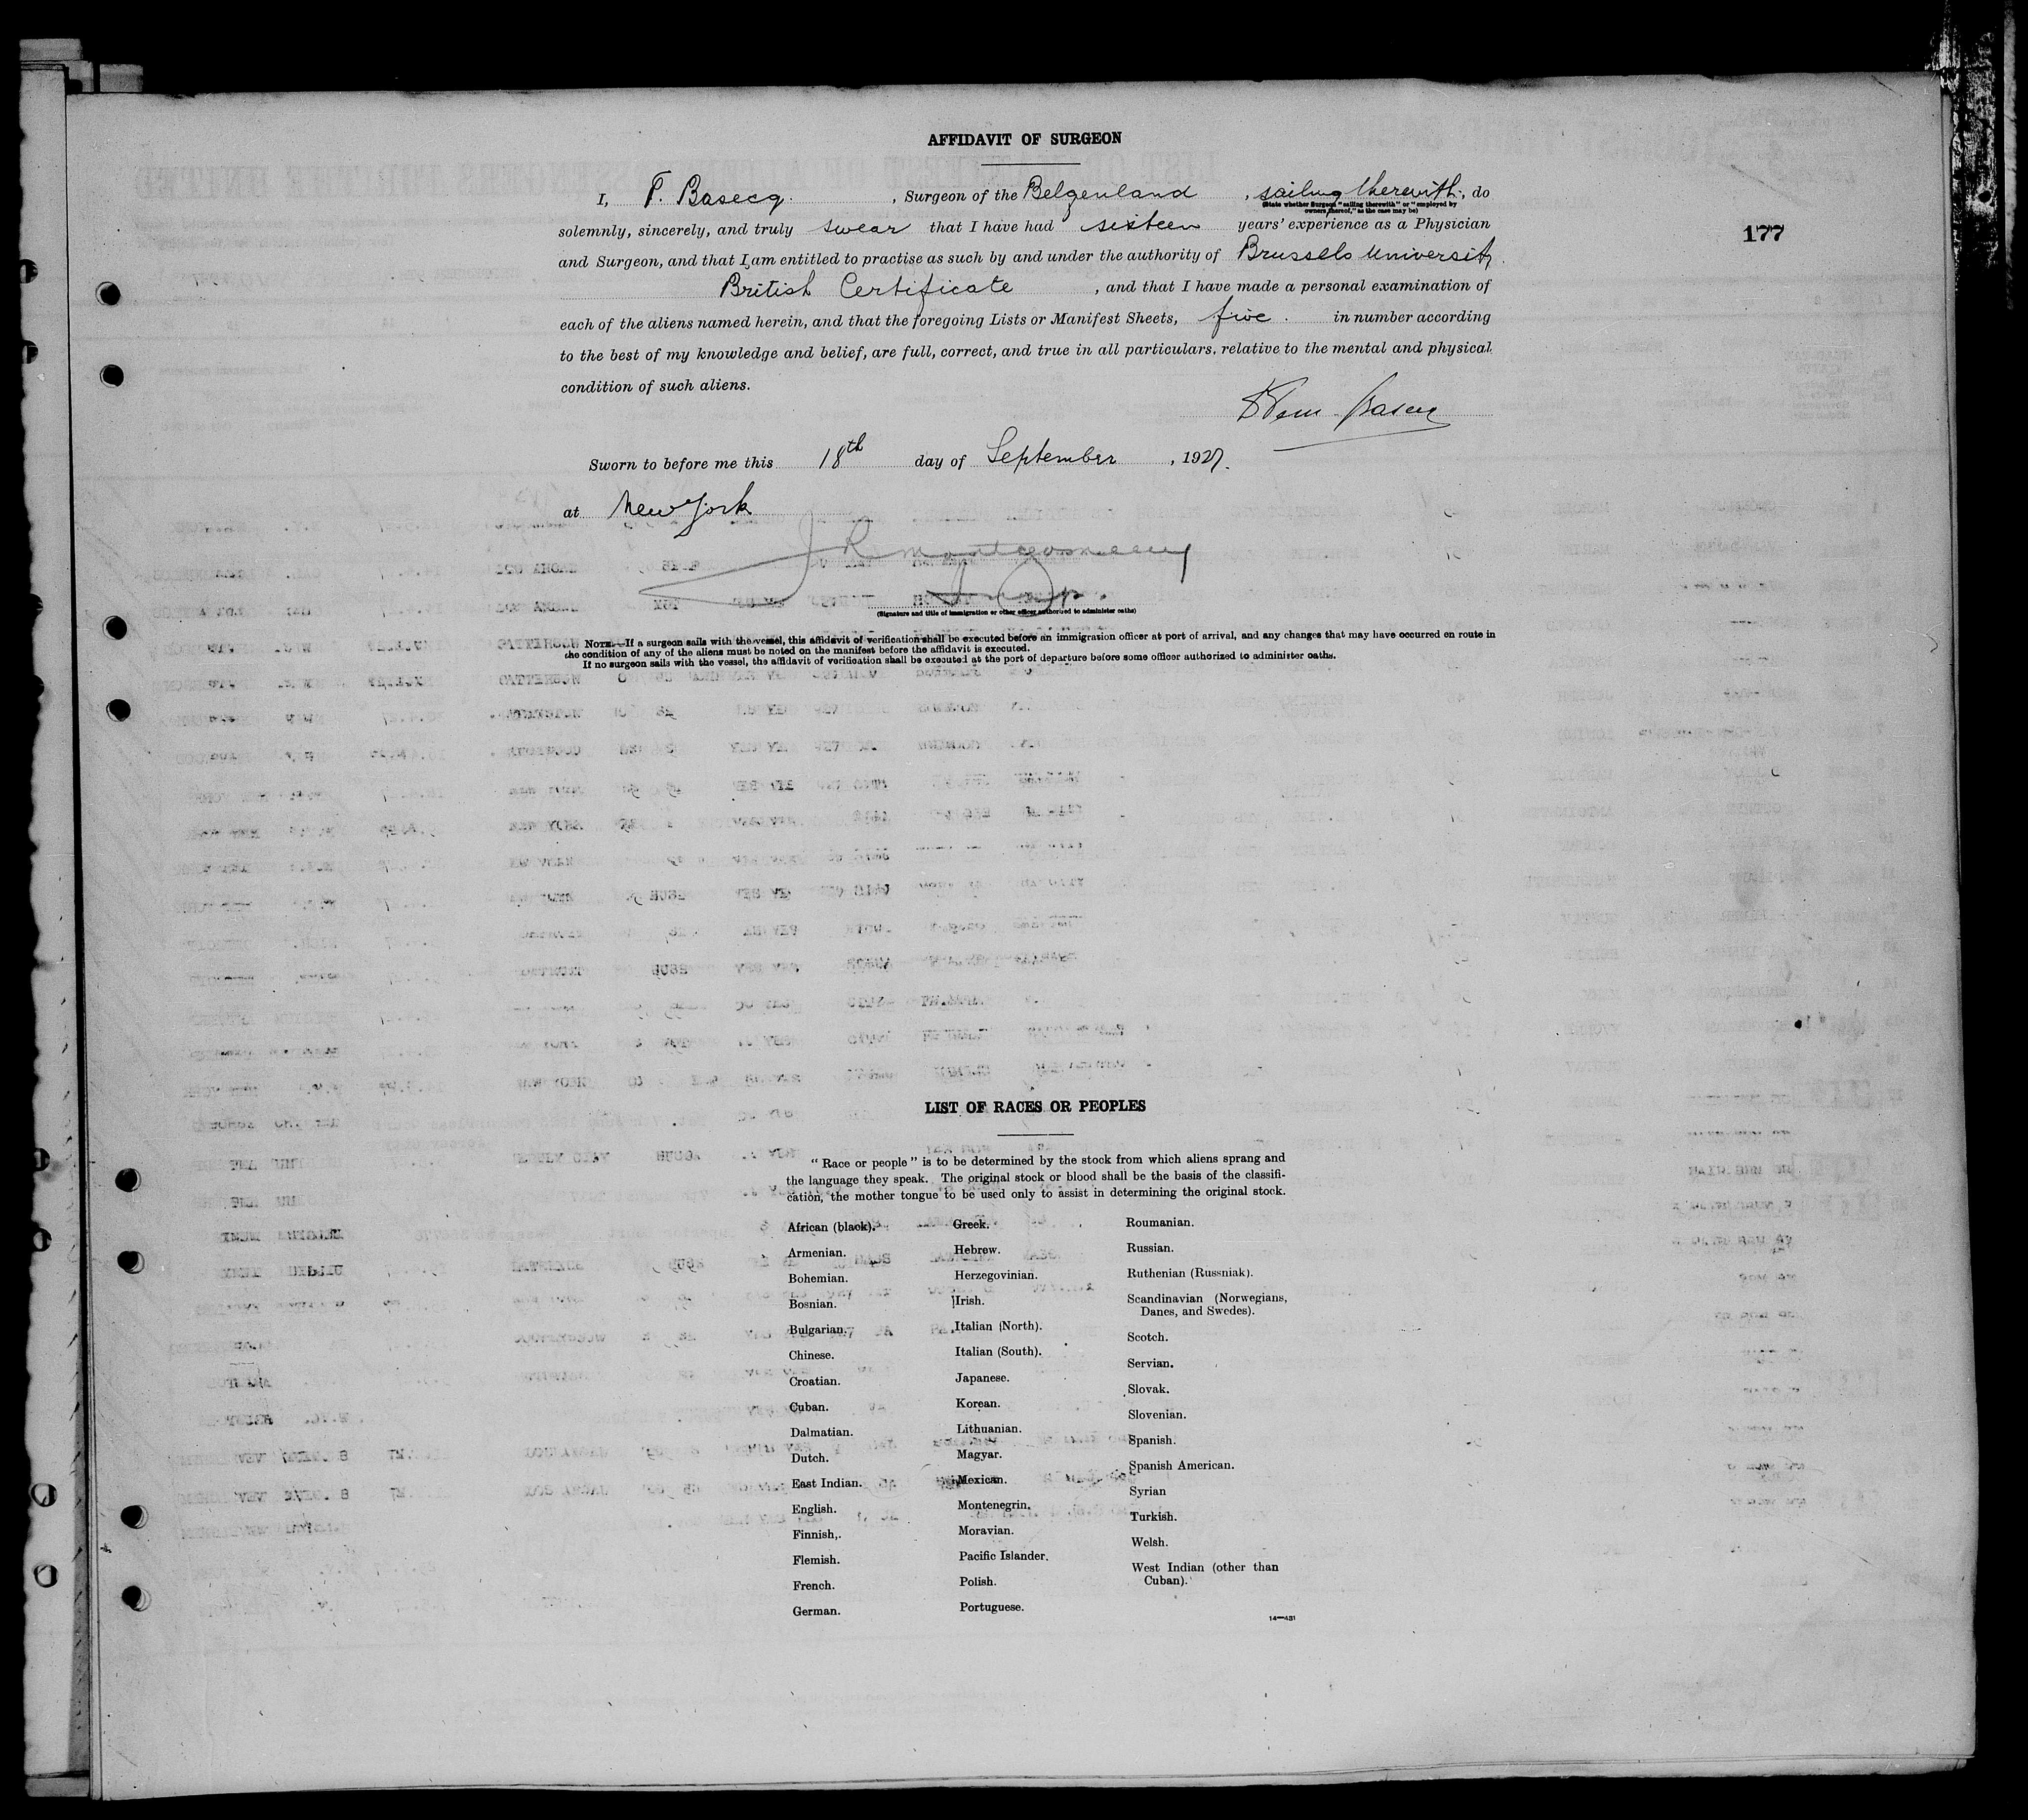 AFFIDAVIT OF SURGEON
I, P. Basecq. , Surgeon of the Belgenland , sailing therewith, do
(State whether Surgeon "sailing therewith" or "employed by
owners thereof," as the case may be)
solemnly, sincerely, and truly swear that I have had sixteen years' experience as a Physician
177
and Surgeon, and that I am entitled to practise as such by and under the authority of Brussels University.
British Certificate , and that I have made a personal examination of
each of the aliens named herein, and that the foregoing Lists or Manifest Sheets, five. in number according
to the best of my knowledge and belief, are full, correct, and true in all particulars, relative to the mental and physical
condition of such aliens.
Basecq
Sworn to before me this 18th day of September , 1927.
at New York
J R Montgomery
(Signature and title of immigration or other officer authorized to administer oaths)
NOTE.—If a surgeon sails with the vessel, this affidavit of verification shall be executed before an immigration officer at port of arrival, and any changes that may have occurred en route in
the condition of any of the aliens must be noted on the manifest before the affidavit is executed.
If no surgeon sails with the vessel, the affidavit of verification shall be executed at the port of departure before some officer authorized to administer oaths.
LIST OF RACES OR PEOPLES
"Race or people" is to be determined by the stock from which aliens sprang and
the language they speak. The original stock or blood shall be the basis of the classifi-
cation, the mother tongue to be used only to assist in determining the original stock.
African (black).
Armenian.
Bohemian.
Bosnian.
Bulgarian.
Chinese.
Croatian.
Cuban.
Dalmatian.
Dutch.
East Indian.
English.
Finnish.
Flemish.
French.
German.
Greek.
Hebrew.
Herzegovinian.
Irish.
Italian (North).
Italian (South).
Japanese.
Korean.
Lithuanian.
Magyar.
Mexican.
Montenegrin.
Moravian.
Pacific Islander.
Polish.
Portuguese.
Roumanian.
Russian.
Ruthenian (Russniak).
Scandinavian (Norwegians,
Danes, and Swedes).
Scotch.
Servian.
Slovak.
Slovenian.
Spanish.
Spanish American.
Syrian
Turkish.
Welsh.
West Indian (other than
Cuban).
14—431